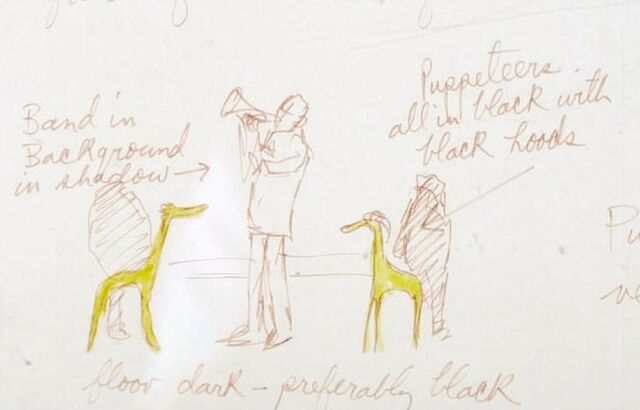 Puppeteers
all in black with
black hoods
Band in
Background
in shadow →
Pu
floor dark – preferably black